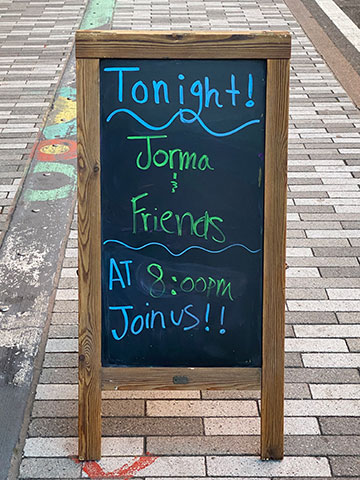 Tonight!
Jorma
&
Friends
AT 8:00pm
Join us!!